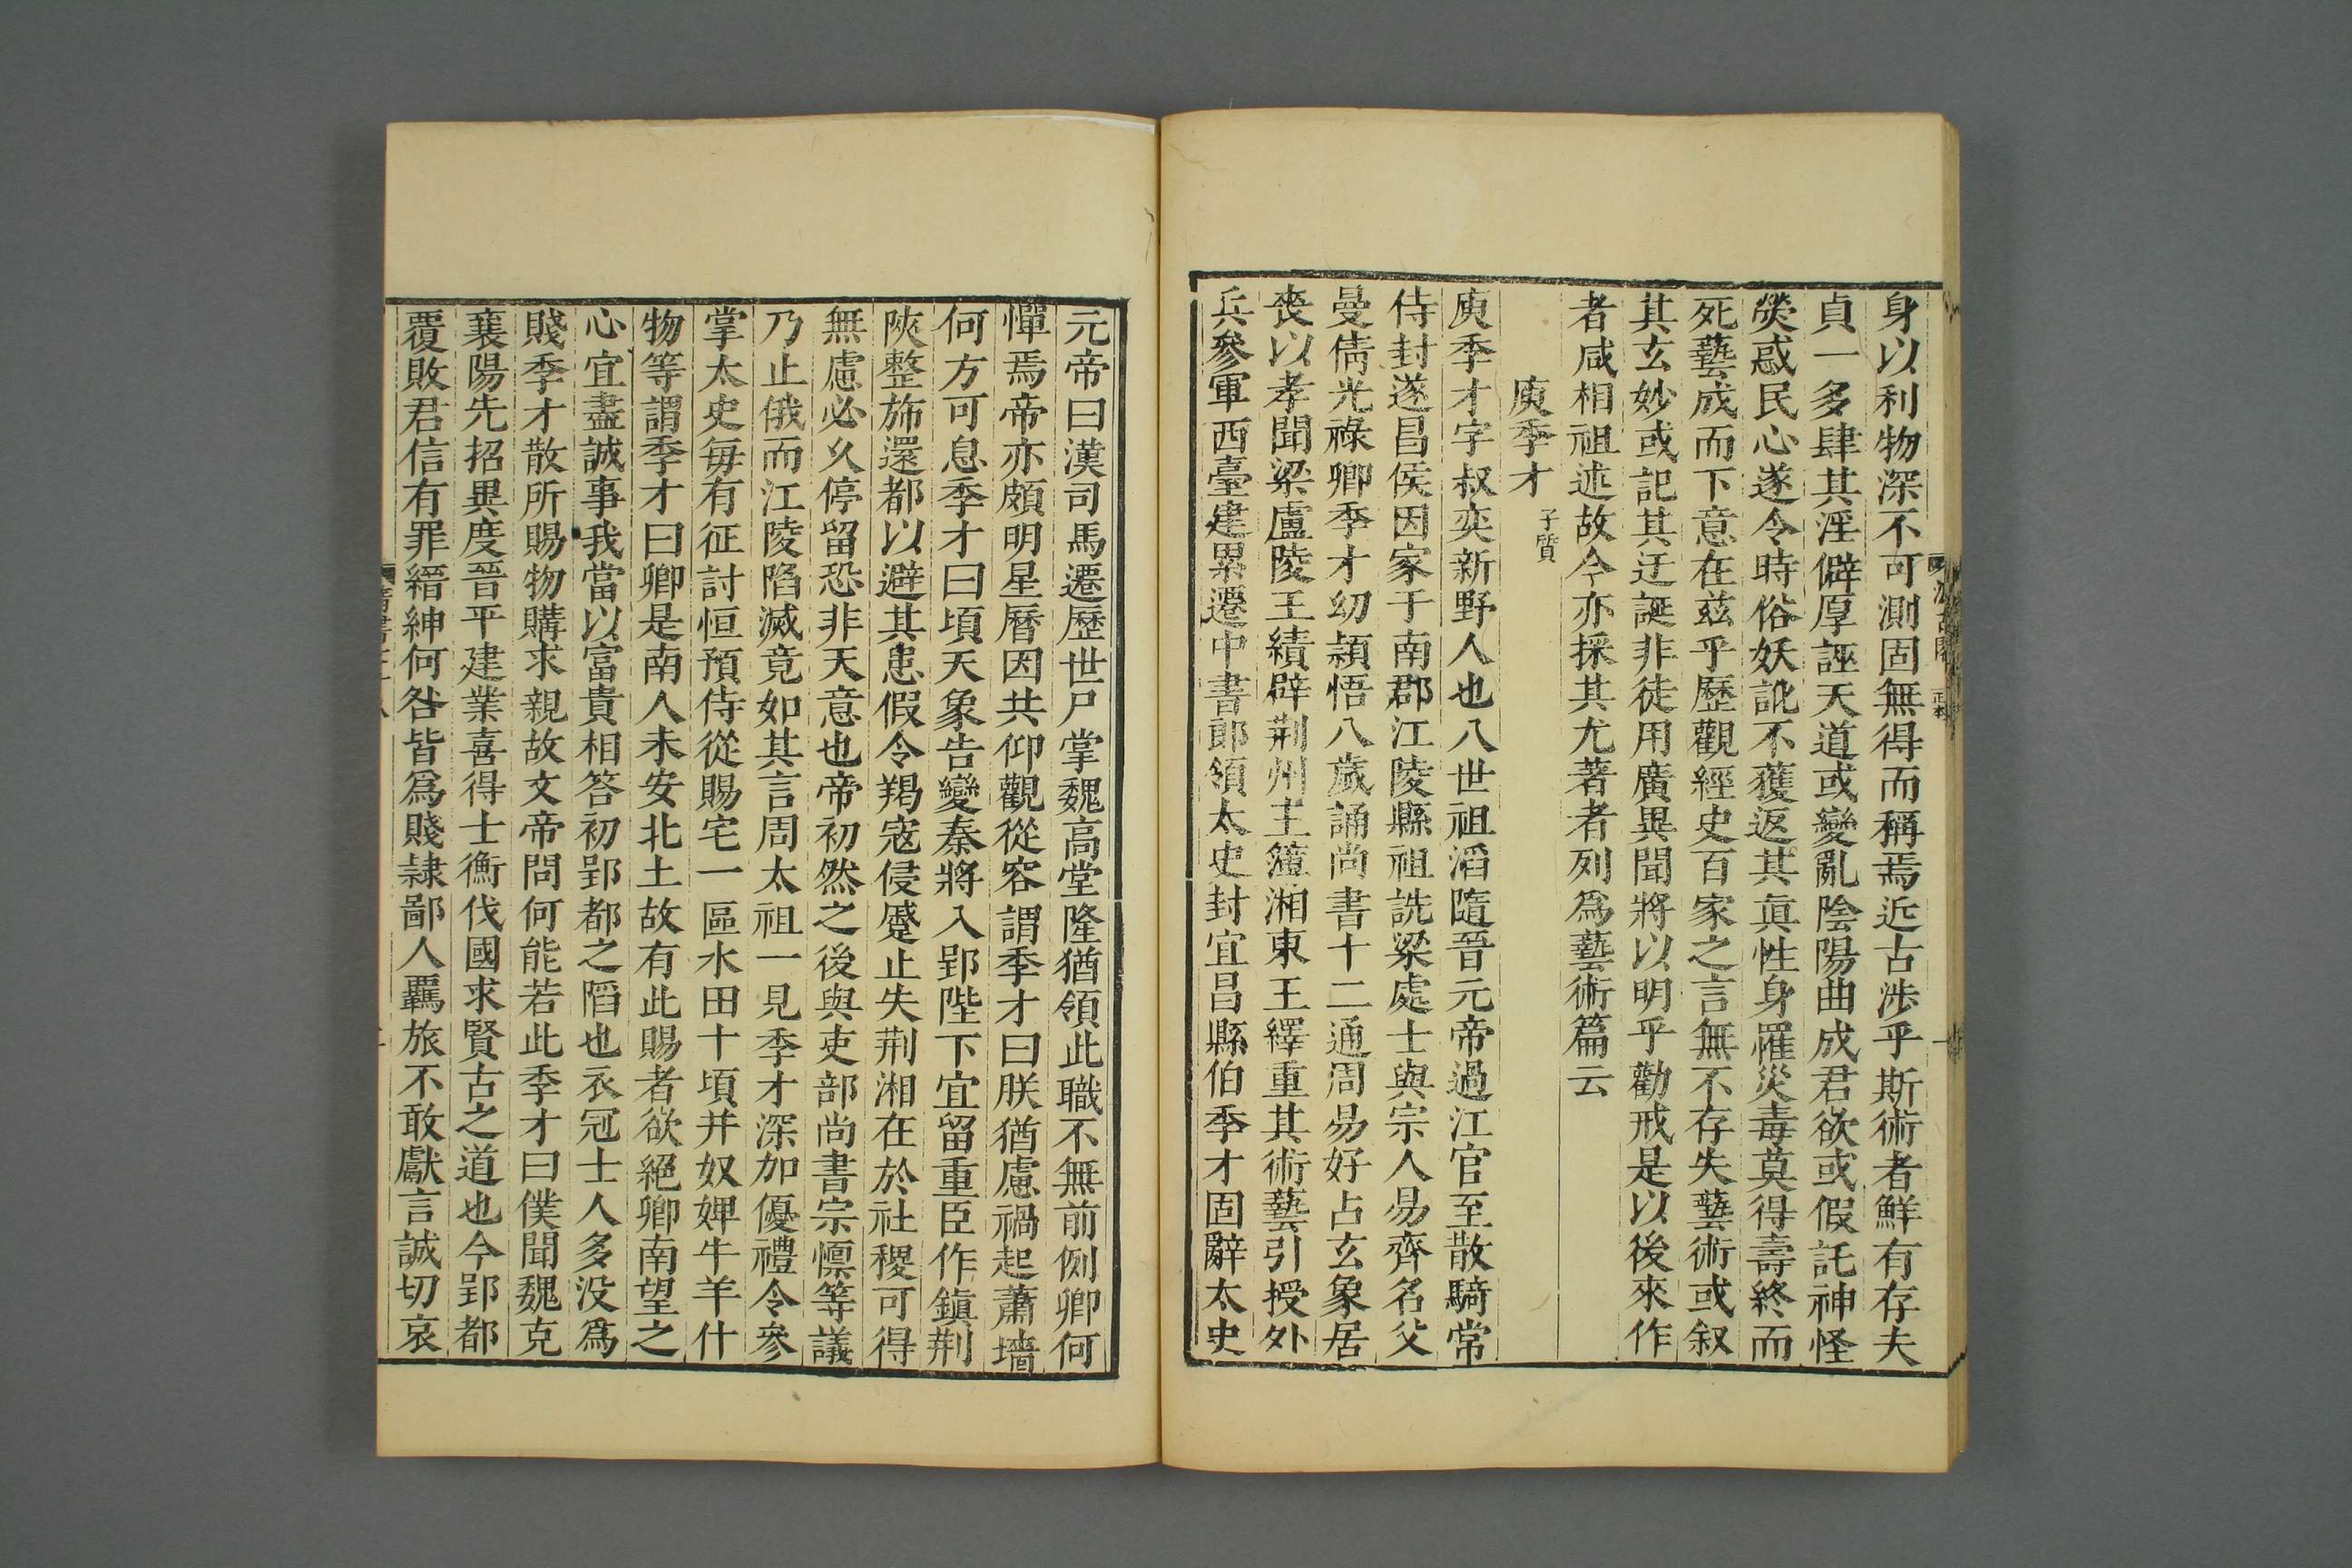 身以利物深不可測固無得而稱焉近古涉乎斯術者鮮有存夫
貞一多肆其淫僻厚誣天道或變亂陰陽曲成君欲或假託神怪
熒惑民心遂令時俗妖訛不獲返其真性身罹災毒莫得壽終而
死藝成而下意在茲乎歷觀經史百家之言無不存夫藝術或叙
其玄妙或記其迂誕非徒用廣異聞將以明乎勸戒是以後來作
者咸相祖述故今亦採其尤著者列爲藝術篇云
庾季才 子質
庾季才字叔奕新野人也八世祖滔隨晉元帝過江官至散騎常
侍封遂昌侯因家于南郡江陵縣祖詵梁處士與宗人易齊名父
曼倩光祿卿季才幼穎悟八歲誦尚書十二通周易好占玄象居
喪以孝聞梁廬陵王績辟荆州主簿湘東王繹重其術藝引授外
兵參軍西臺建累遷中書郎領太史封宜昌縣伯季才固辭太史
元帝曰漢司馬遷歷世尸掌魏高堂隆猶領此職不無前例卿何
憚焉帝亦頗明星曆因共仰觀從容謂季才曰朕猶慮禍起蕭墻
何方可息季才曰頃天象告變秦將入郢陛下宜留重臣作鎭荆
陝整旆還都以避其患假令羯寇侵蹙止失荆湘在於社稷可得
無慮必久停留恐非天意也帝初然之後與吏部尚書宗懍等議
乃止俄而江陵陷滅竟如其言周太祖一見季才深加優禮令參
掌太史每有征討恒預侍從賜宅一區水田十頃并奴婢牛羊什
物等謂季才曰卿是南人未安北土故有此賜者欲絕卿南望之
心宜盡誠事我當以富貴相答初郢都之陷也衣冠士人多没爲
賤季才散所賜物購求親故文帝問何能若此季才曰僕聞魏克
襄陽先招異度晉平建業喜得士衡伐國求賢古之道也今郢都
覆敗君信有罪縉紳何咎皆爲賤隷鄙人羈旅不敢獻言誠切哀